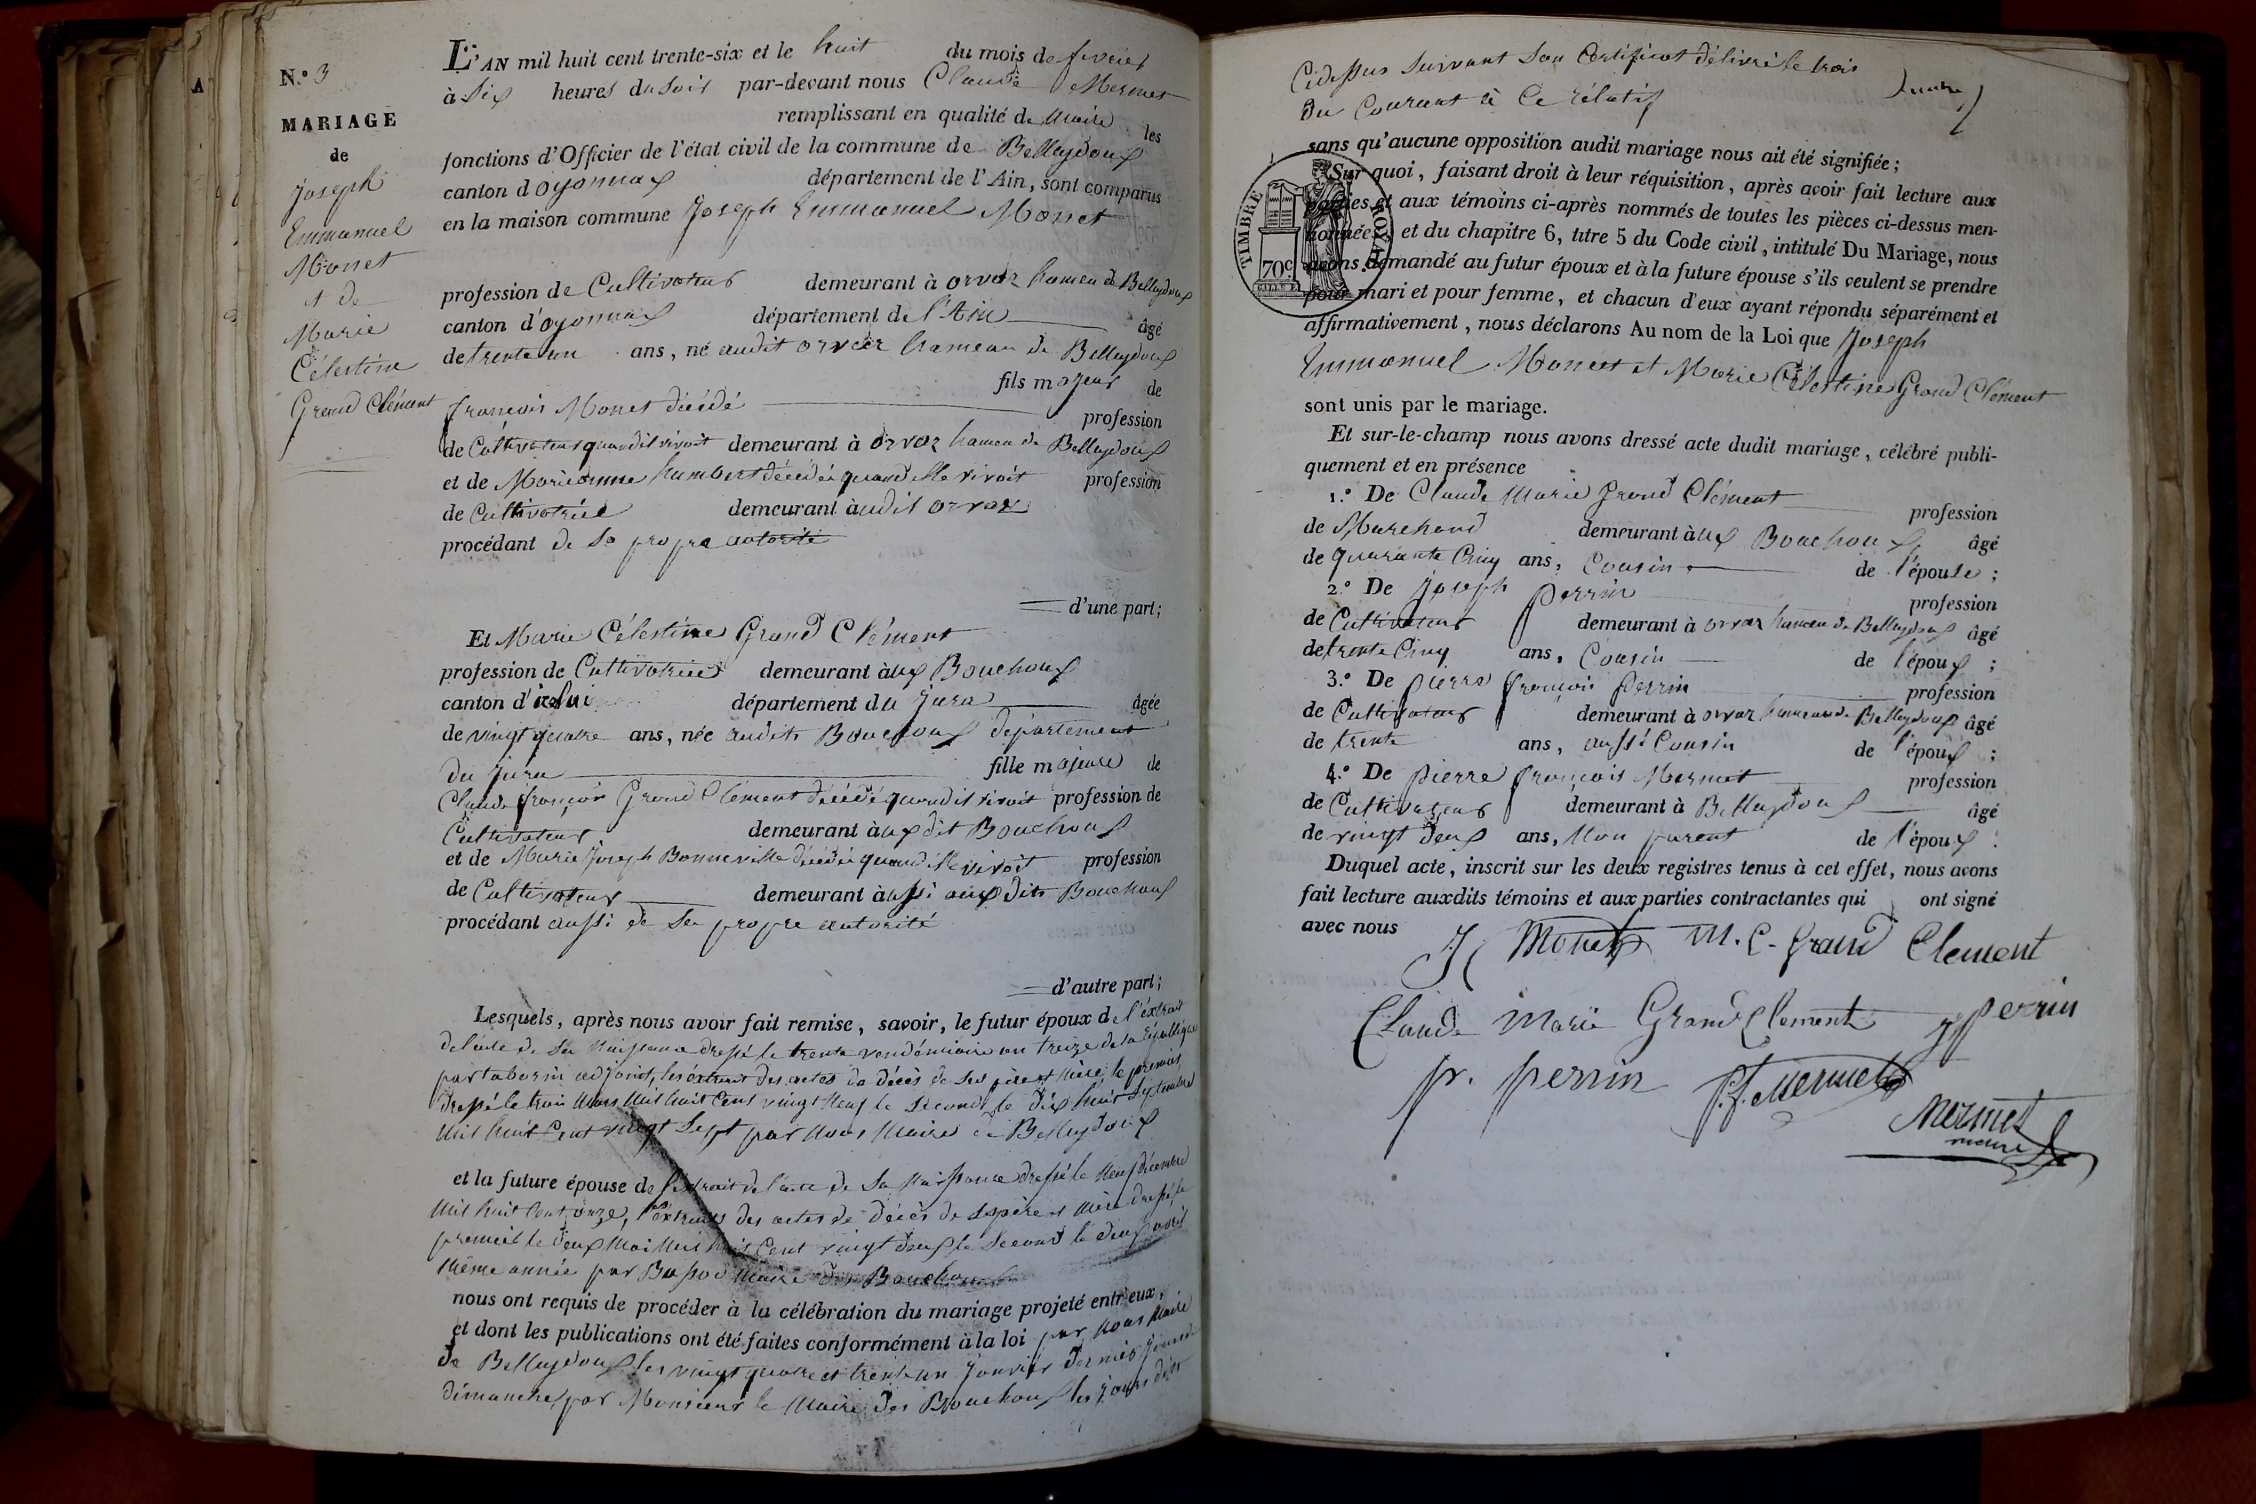 N.º 3
MARIAGE
de
Joseph
Emmanuel
Monet
et de
Marie
Célestine
Grand Clément
L'AN mil huit cent trente-six et le huit du mois de fevrier
à six heures du soir par-devant nous Claude Mermet
remplissant en qualité de Maire les
fonctions d'Officier de l'état civil de la commune de Belleydoux
canton d'oyonnax département de l'Ain, sont comparus
en la maison commune Joseph Emmanuel Monet
profession de Cultivateur demeurant à orvaz hameau de Belleydoux
canton d'oyonnax département de l'Ain âgé
de trente un ans, né audit orvaz hameau de Belleydoux
fils majeur de
françois Monet décédé profession
de Cultivateur quand il vivoit demeurant à orvaz hameau de Belleydoux
et de Marieanne humbert décédée quand elle vivoit profession
de Cultivatrice demeurant àudit orvaz
procédant de sa propre autorité
d'une part;
Et Marie Célestine Grand Clément
profession de Cultivatrice demeurant àux Bouchoux
canton d' département du Jura âgée
de vingt quatre ans, née audits Bouchoux département
du Jura fille majeure de
Claude françois Grand Clément décédé quand il vivoit profession de
Cultivateur demeurant àuxdit Bouchoux
et de Marie Joseph Bonneville décédée quand elle vivoit profession
de Cultivateur demeurant àussi auxdits Bouchoux
procédant aussi de sa propre autorité
d'autre part;
Lesquels, après nous avoir fait remise, savoir, le futur époux de l'éxtrait
de l'acte de sa naissance dressé le trente vendémiaire an treize de la République
par tabornin adjoint, les éxtraits des actes de décès de ses père et mère le premier
dressé le trois Mars Mil huit Cent vingt Neuf le second le dix huit septembre
Mil huit Cent vingt Sept par Nous Maire de Belleydoux
et la future épouse de l'éxtrait de l'acte de sa Naissance dressé le Neuf décembre
Mil huit Cent onze, l'éxtraits des actes de décès de ses père et Mère dressé le
premier le deux Mai Mil huit Cent vingt deux le Second le deux avril
Même année par Maire des Bouchoux
nous ont requis de procéder à la célébration du mariage projeté entr'eux,
et dont les publications ont été faites conformément à la loi par Nous Maire
de Belleydoux les vingt quatre et trente un Janvier dernier jours de
dimanche, par Monsieur le Maire des Bouchoux les jours
Cidessus suivant son Certificat délivré le trois
du Courant à Ce rélatif
sans qu'aucune opposition audit mariage nous ait été signifiée;
Sur quoi, faisant droit à leur réquisition, après avoir fait lecture aux
parties et aux témoins ci-après nommés de toutes les pièces ci-dessus men-
tionnées, et du chapitre 6, titre 5 du Code civil, intitulé Du Mariage, nous
avons demandé au futur époux et à la future épouse s'ils veulent se prendre
pour mari et pour femme, et chacun d'eux ayant répondu séparément et
affirmativement, nous déclarons Au nom de la Loi que Joseph
Emmanuel Monet et Marie Célestine Grand Clément
sont unis par le mariage.
TIMBRE ROYAL
70c.
Et sur-le-champ nous avons dressé acte dudit mariage, célébré publi-
quement et en présence
1.º De Claude Marie Grand Clément profession
de Marchand demeurant àux Bouchoux âgé
de quarante Cinq ans, Cousin de l'épouse;
2.º De Joseph Perrin profession
de Cultivateur demeurant à orvaz hameau de Belleydoux âgé
de trente Cinq ans, Cousin de l'époux;
3.º De pierre françois Perrin profession
de Cultivateur demeurant à orvaz hameau de Belleydoux âgé
de trente ans, aussi Cousin de l'époux;
4.º De pierre françois Mermet profession
de Cultivateur demeurant à Belleydoux âgé
de vingt deux ans, Non parent de l'époux.
Duquel acte, inscrit sur les deux registres tenus à cet effet, nous avons
fait lecture auxdits témoins et aux parties contractantes qui ont signé
avec nous
Monet M. C. Grand Clement
Claude Marie Grand Clement Perrin
pr. perrin P. f. Mermet
Mermet
maire